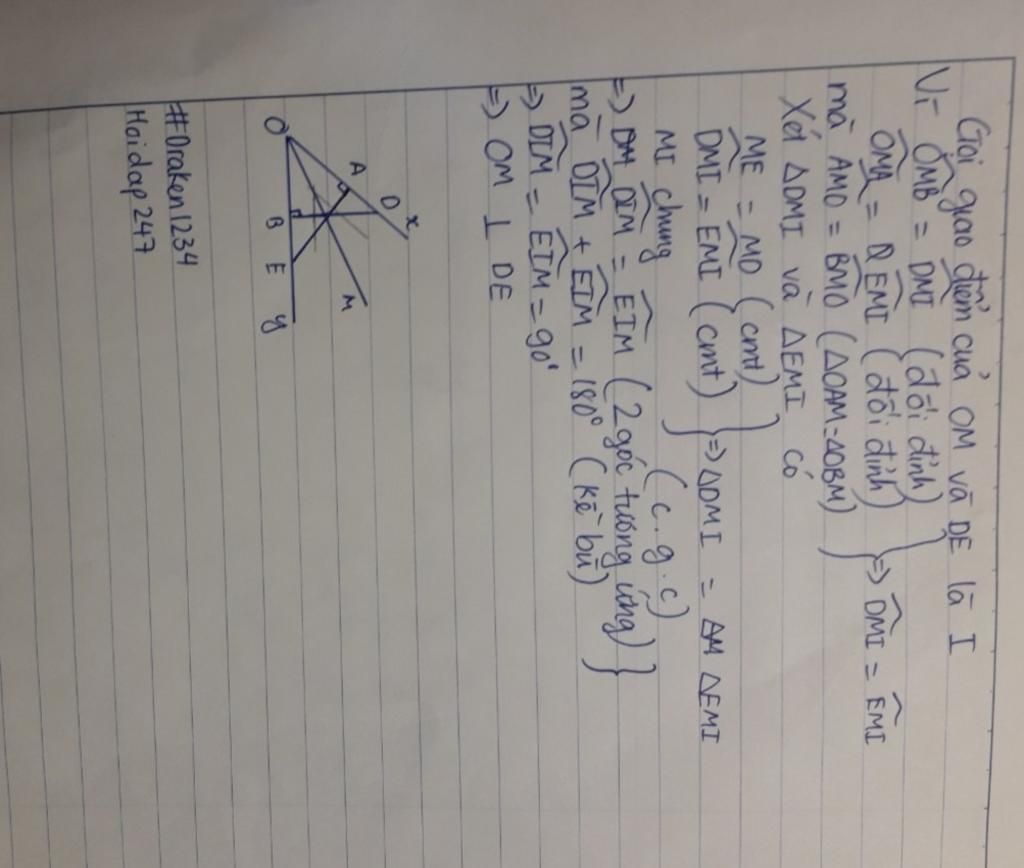 Gọi giao điểm của OM và DE là I
Vì OMB = DMI (đối đỉnh)
OMA = EMI (đối đỉnh) } => DMI = EMI
mà AMO = BMO (ΔOAM = ΔOBM)
Xét ΔDMI và ΔEMI có
ME = MD (cmt)
DMI = EMI (cmt) } => ΔDMI = ΔEMI
MI chung (c.g.c)
=> DIM = EIM (2 góc tương ứng) }
mà DIM + EIM = 180° (kề bù)
=> DIM = EIM = 90°
=> OM ⊥ DE
x
D
A
M
O
B
E
y
#Draken1234
Hoidap247